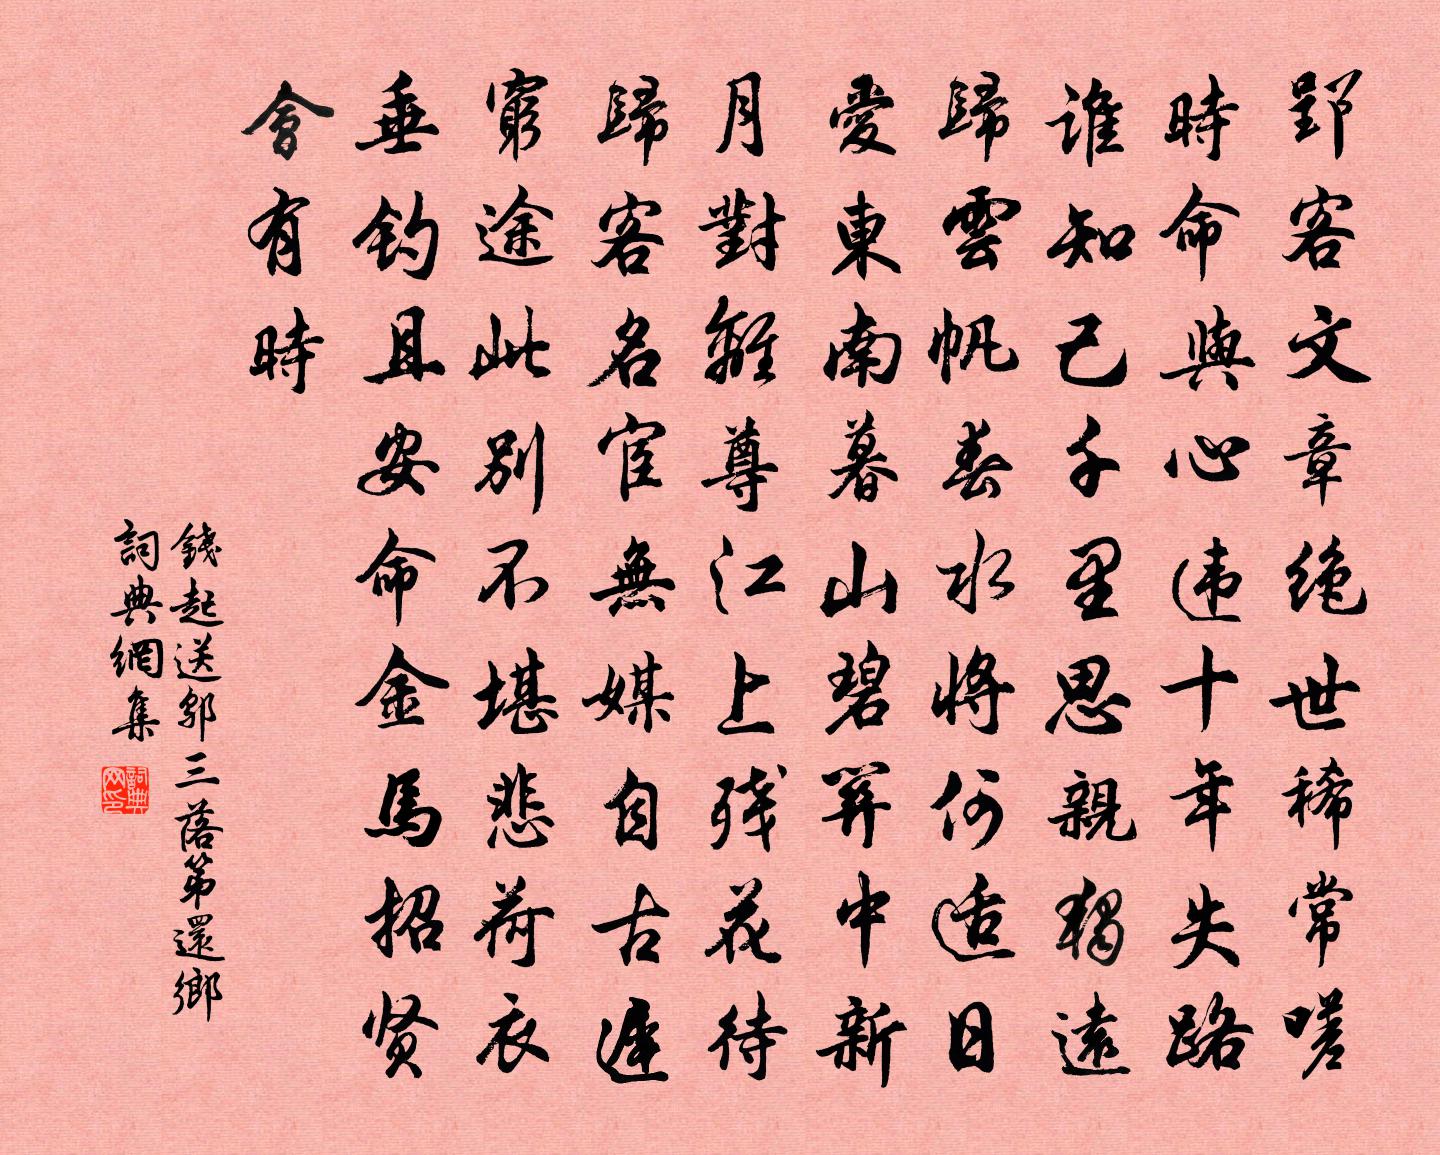 郢客文章绝世稀常嗟
時命與心违十年失路
誰知己千里思親獨遠
歸雲帆春水將何适日
愛東南暮山碧關中新
月對離尊江上残花待
歸客名宦無媒自古遲
窮途此别不堪悲荷衣
垂钓且安命金馬招贤
會有時
錢起送鄔三落第還鄉
詞典網集
詞典网印